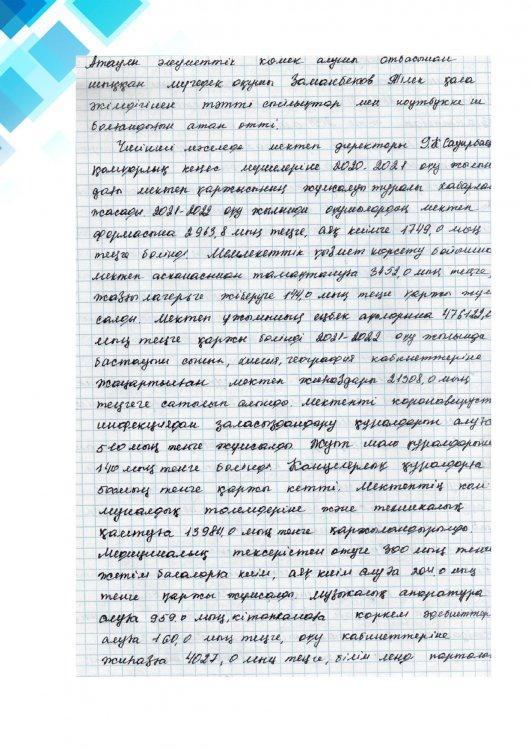 Атаулы әлеуметтік көмек алушы отбасынан
шыққан мүгедек оқушы Заманбеков Тілек қала
әкімдігінен тәтті сыйлықтар мен ноутбукке ие
болғандығын атап өтті.
Үшінші мәселеде мектеп директоры
Қамқорлық кеңес мүшелеріне 2020-2021 оқу жылын
дағы мектеп қаржысының жұмсалуы туралы хабарлама
жасады. 2021-2022 оқу жылында оқушылардың мектеп
формасына 2963,8 мың теңге, аяқ киімге 1749,0 мың
теңге бөлінді. Мемлекеттік қызмет көрсету бойынша
мектеп асханасынан тамақтануға 3152,0 мың теңге,
жазғы лагерьге жіберуге 144,0 мың теңге қаржы жұм
салды. Мектеп ұжымының еңбек ақыларына
мың теңге қаржы бөлінді 2021-2022 оқу жылында
бастауыш сынып, химия, география кабинеттеріне
жаңартылған мектеп жиһаздары 21908,0 мың
теңгеге сатылып алынды. Мектепті коронавирустық
инфекциядан залалсыздандыру құралдарын алуға
500 мың теңге жұмсалды. Жуып шаю құралдарына
140 мың теңге бөлінді. Канцелярлық құралдарға
мың теңге қаржы кетті. Мектептің ком
муналдық төлемдеріне және техникалық
қамтуға 13984,0 мың теңге қаржыландырылды.
Медициналық тексерістен өтуге 300 мың теңге
жетім балаларға киім, аяқ киім алуға 204,0 мың
теңге қаржы жұмсалды. Музыкалық аппаратура
алуға 959,0 мың, кітапханаға көркем әдебиеттер
алуға 160,0 мың теңге, оқу кабинеттеріне
жиһазға 4027,0 мың теңге, білім ленд порталы